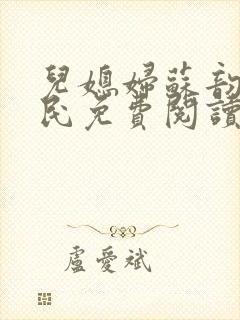 兒媳婦蘇韵
民免費閱讀
盧愛斌